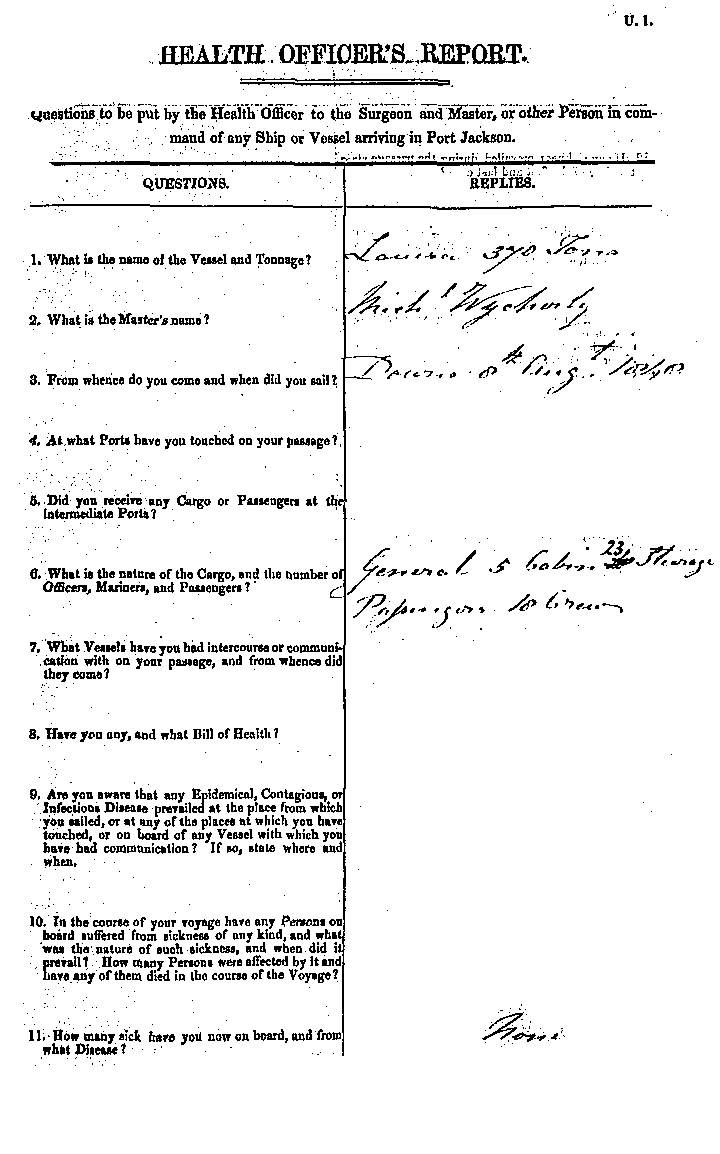 U. 1.
HEALTH OFFICER'S REPORT.
Questions to be put by the Health Officer to the Surgeon and Master, or other Person in com-
mand of any Ship or Vessel arriving in Port Jackson.
QUESTIONS.
REPLIES.
1. What is the name of the Vessel and Tonnage?
Louisa 370 Tons
2. What is the Master's name?
Michl Wycherly
3. From whence do you come and when did you sail?
Downs 8th Augt 1840
4. At what Ports have you touched on your passage?
5. Did you receive any Cargo or Passengers at the
Intermediate Ports?
6. What is the nature of the Cargo, and the number of
Officers, Mariners, and Passengers?
General 5 Cabin 23 Steerage
Passengers 18 Crew
7. What Vessels have you had intercourse or communi-
cation with on your passage, and from whence did
they come?
8. Have you any, and what Bill of Health?
9. Are you aware that any Epidemical, Contagious, or
Infectious Disease prevailed at the place from which
you sailed, or at any of the places at which you have
touched, or on board of any Vessel with which you
have had communication? If so, state where and
when.
10. In the course of your voyage have any Persons on
board suffered from sickness of any kind, and what
was the nature of such sickness, and when did it
prevail? How many Persons were affected by it and
have any of them died in the course of the Voyage?
11. How many sick have you now on board, and from
what Disease?
None